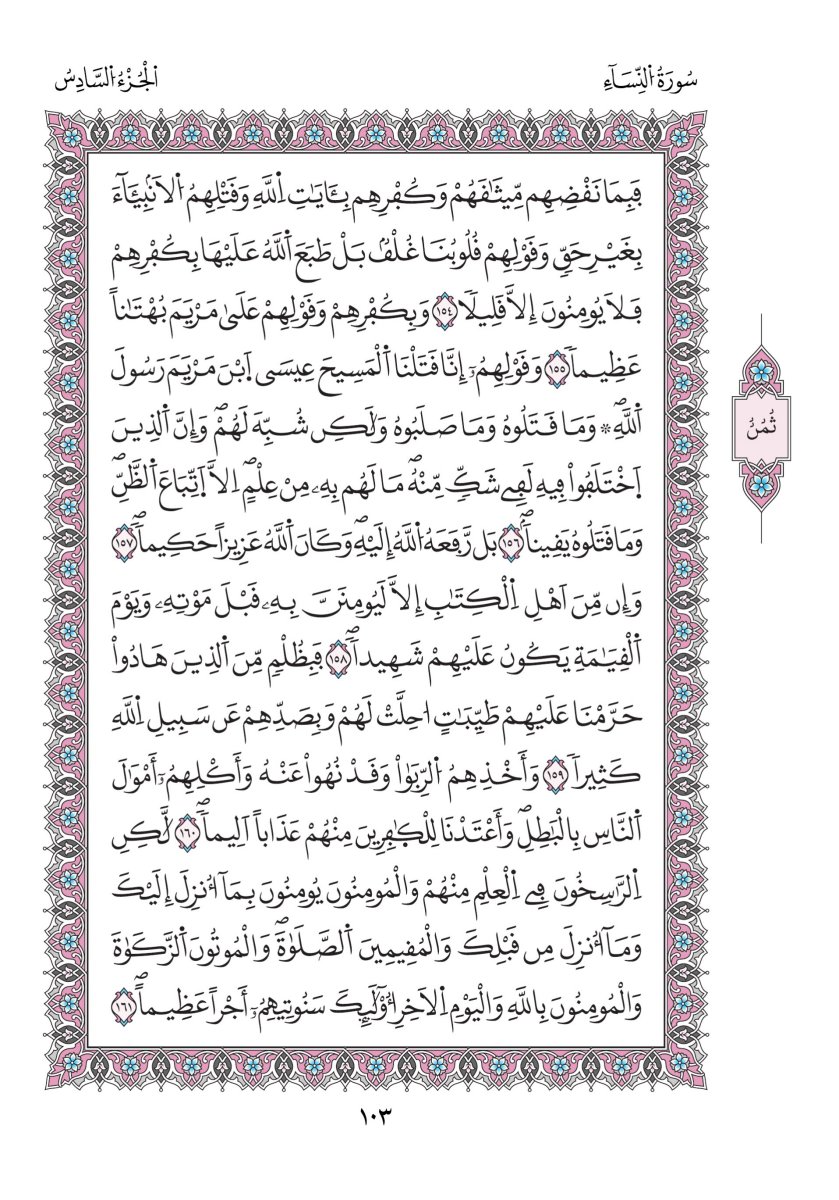 سُورَةُ النِّسَآءِ
الْجُزْءُ السَّادِسُ
فَبِمَا نَقْضِهِم مِّيثَٰقَهُمْ وَكُفْرِهِم بِـَٔايَٰتِ اِ۬للَّهِ وَقَتْلِهِمُ اُ۬لَانۢبِيَآءَ
بِغَيْرِ حَقٍّ وَقَوْلِهِمْ قُلُوبُنَا غُلْفُۢ بَلْ طَبَعَ اَ۬للَّهُ عَلَيْهَا بِكُفْرِهِمْ
فَلَا يُومِنُونَ إِلَّا قَلِيلاٗ ١٥٤ وَبِكُفْرِهِمْ وَقَوْلِهِمْ عَلَىٰ مَرْيَمَ بُهْتَٰناً
عَظِيماٗ ١٥٥ وَقَوْلِهِمُۥٓ إِنَّا قَتَلْنَا اَ۬لْمَسِيحَ عِيسَى اَ۪بْنَ مَرْيَمَ رَسُولَ
اَ۬للَّهِۖ * وَمَا قَتَلُوهُ وَمَا صَلَبُوهُ وَلَٰكِن شُبِّهَ لَهُمْۖ وَإِنَّ اَ۬لذِينَ
اَ۪خْتَلَفُواْ فِيهِ لَفِے شَكّٖ مِّنْهُۖ مَا لَهُم بِهِۦ مِنْ عِلْمٍ اِلَّا اَ۪تِّبَاعَ اَ۬لظَّنِّۖ
وَمَا قَتَلُوهُ يَقِيناَۢۖ ١٥٦ بَل رَّفَعَهُ اُ۬للَّهُ إِلَيْهِۖ وَكَانَ اَ۬للَّهُ عَزِيزاً حَكِيماٗۖ ١٥٧
وَإِن مِّنَ اَهْلِ اِ۬لْكِتَٰبِ إِلَّا لَيُومِنَنَّ بِهِۦ قَبْلَ مَوْتِهِۦ وَيَوْمَ
اَ۬لْقِيَٰمَةِ يَكُونُ عَلَيْهِمْ شَهِيداٗۖ ١٥٨ فَبِظُلْمٖ مِّنَ اَ۬لذِينَ هَادُواْ
حَرَّمْنَا عَلَيْهِمْ طَيِّبَٰتٍ ا۟حِلَّتْ لَهُمْ وَبِصَدِّهِمْ عَن سَبِيلِ اِ۬للَّهِ
كَثِيراٗ ١٥٩ وَأَخْذِهِمُ اُ۬لرِّبَوٰاْ وَقَدْ نُهُواْ عَنْهُ وَأَكْلِهِمُۥٓ أَمْوَٰلَ
اَ۬لنَّاسِ بِالْبَٰطِلِۖ وَأَعْتَدْنَا لِلْكٰ۪فِرِينَ مِنْهُمْ عَذَاباً اَلِيماٗۖ ١٦٠ لَّٰكِنِ
اِ۬لرَّٰسِخُونَ فِے اِ۬لْعِلْمِ مِنْهُمْ وَالْمُومِنُونَ يُومِنُونَ بِمَآ أُنزِلَ إِلَيْكَ
وَمَآ أُنزِلَ مِن قَبْلِكَ وَالْمُقِيمِينَ اَ۬لصَّلَوٰةَۖ وَالْمُوتُونَ اَ۬لزَّكَوٰةَ
وَالْمُومِنُونَ بِاللَّهِ وَالْيَوْمِ اِ۬لَاخِرِ أُوْلَٰٓئِكَ سَنُوتِيهِمُۥٓ أَجْراً عَظِيماًۖ ١٦١
ثُمُنُ
١٠٣